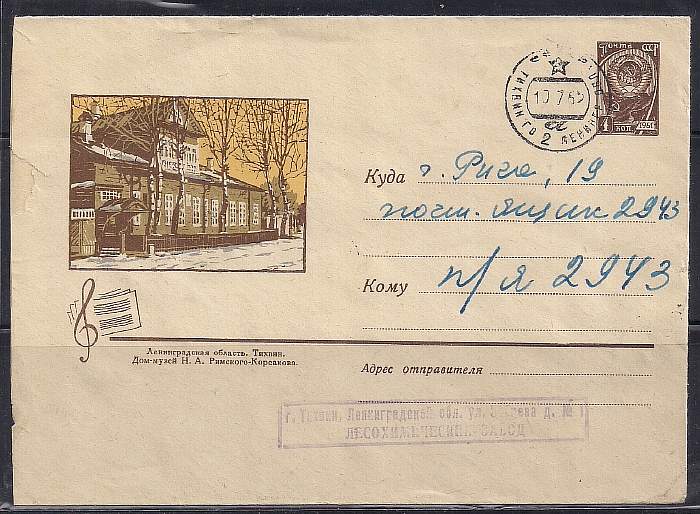 почта СССР
1961
4 коп
ТИХВИН ГО
10 7 6
2
Куда г. Рига, 19
почт. ящик 2943
Кому п/я 2943
Ленинградская область. Тихвин.
Дом-музей Н. А. Римского-Корсакова.
Адрес отправителя
г. Тихвин, Ленинградской обл. ул. д. № 1
ЛЕСОХИМИЧЕСКИЙ ЗАВОД